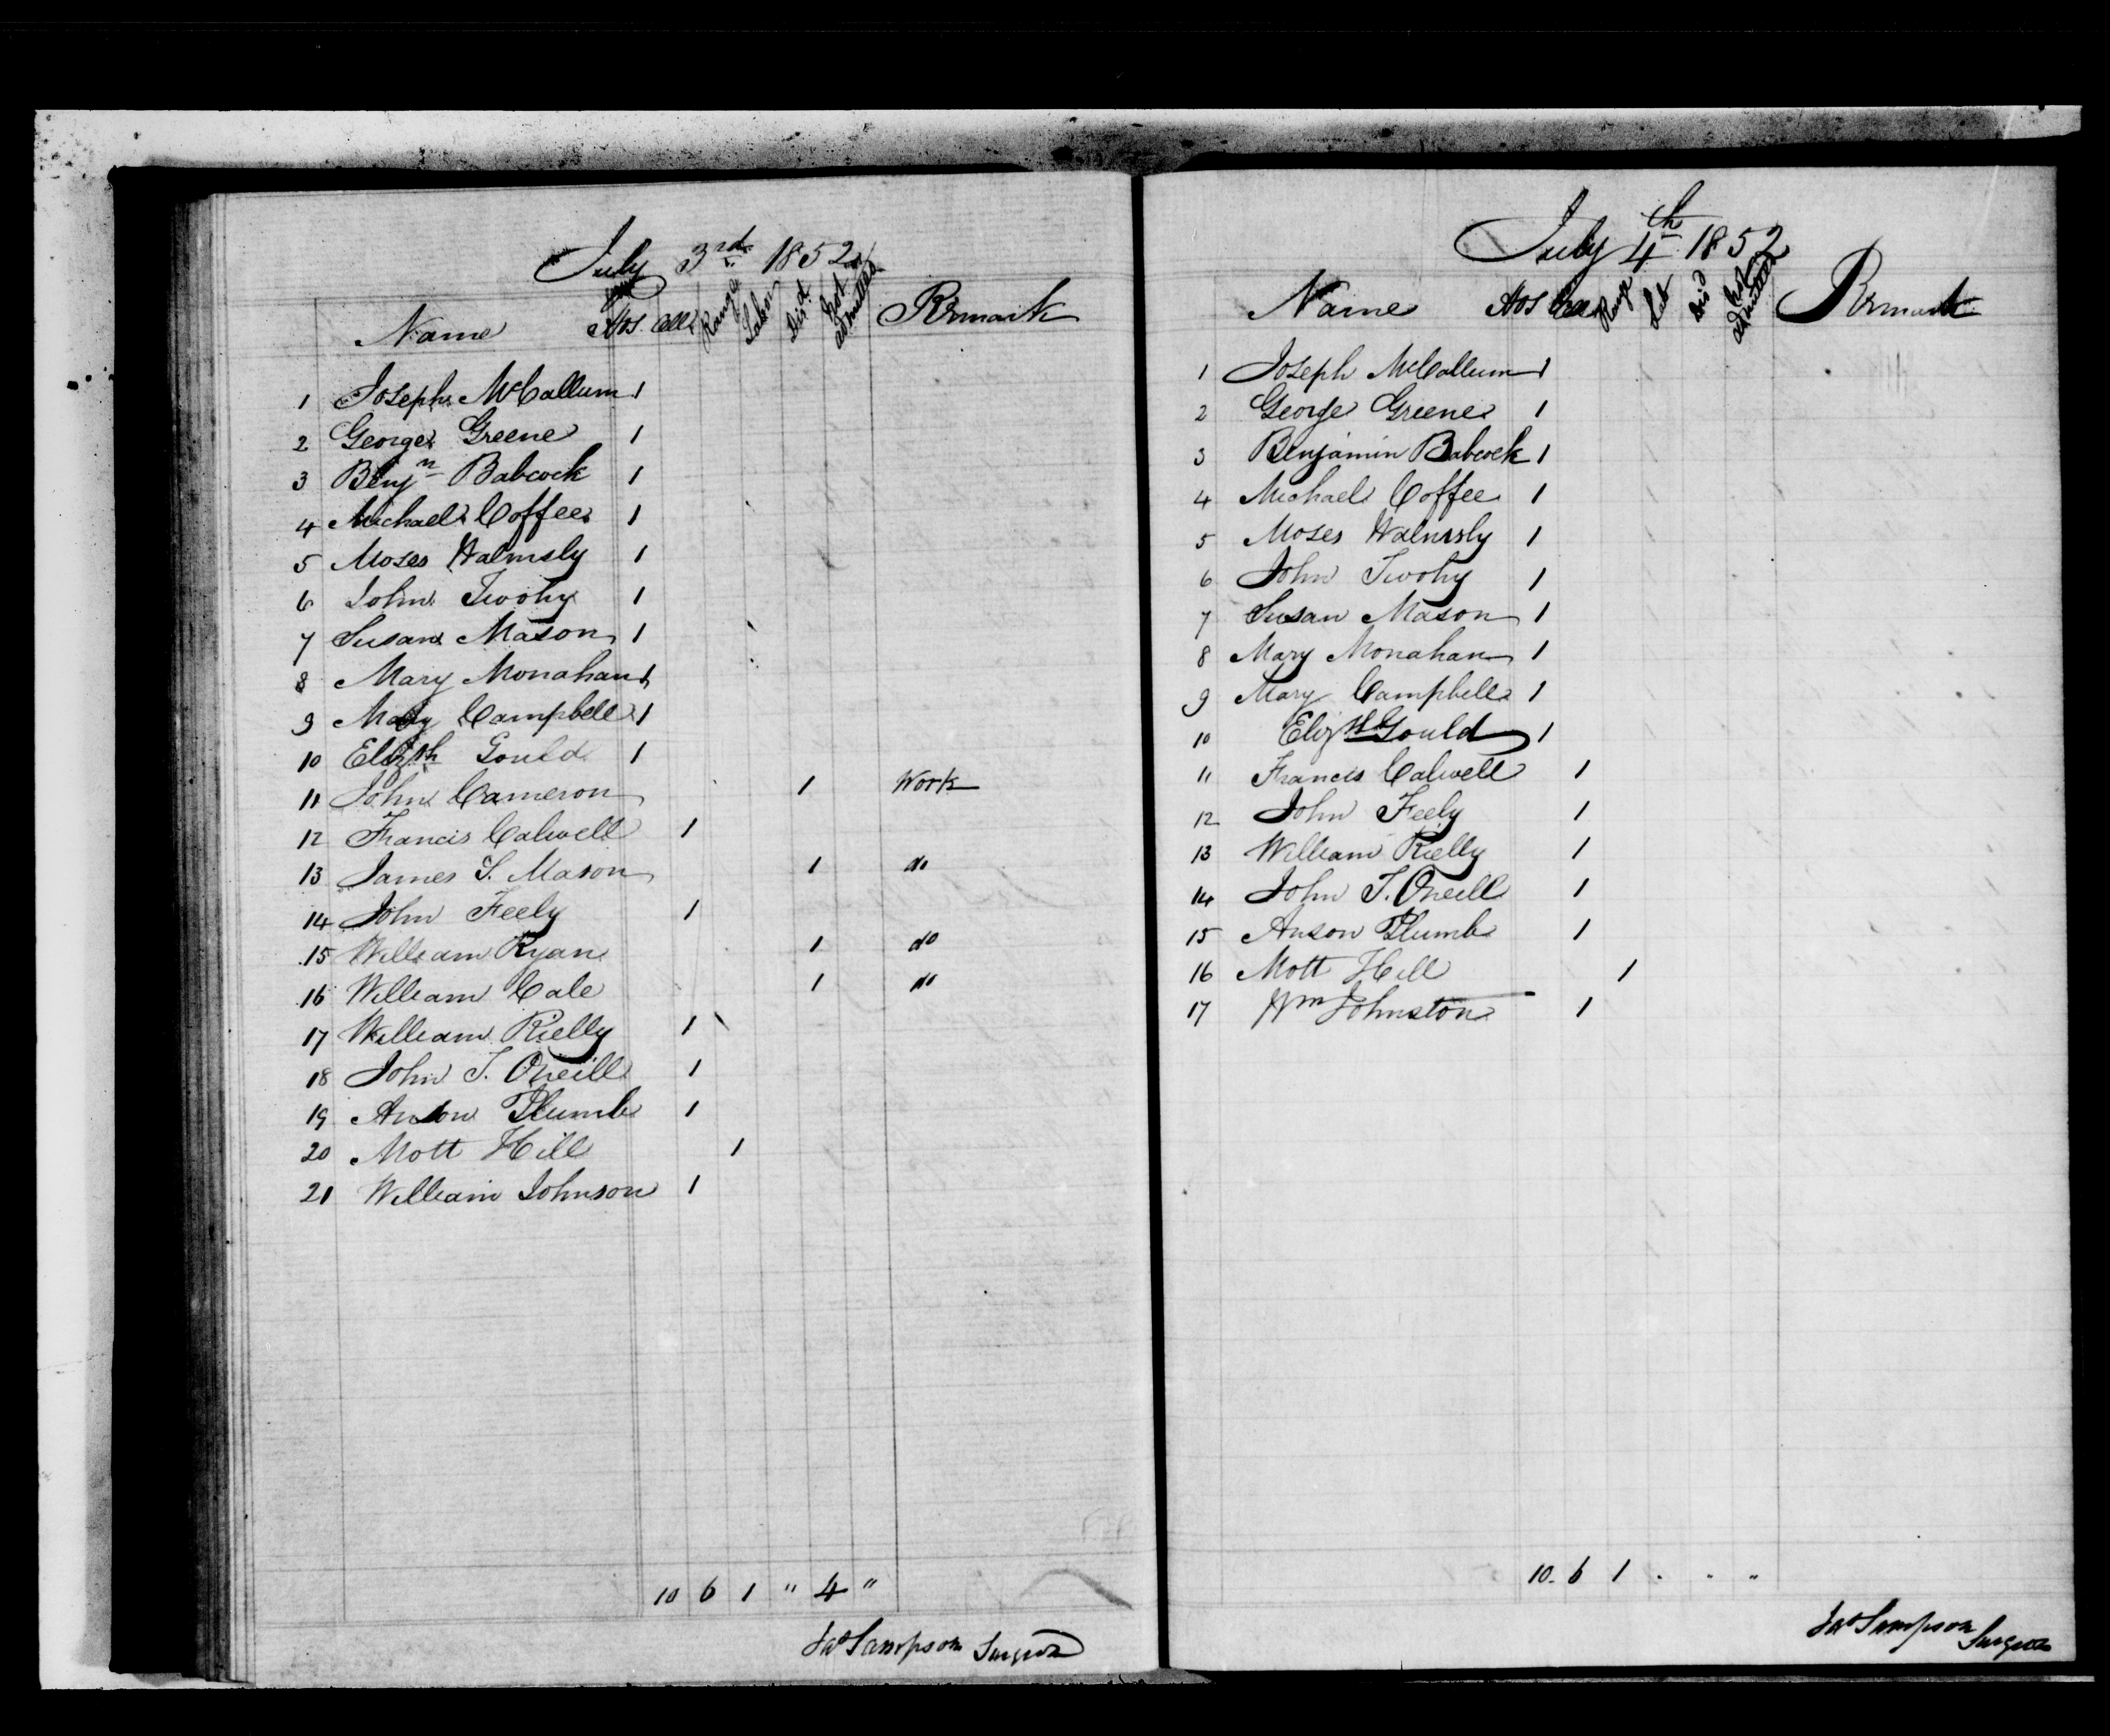 July 3rd 1852
Name Hos Cell Range Labor Dis'd Not admitted Remark
1 Joseph McCallum 1
2 George Greene 1
3 Benjn Babcock 1
4 Michael Coffee 1
5 Moses Walmsly 1
6 John Twohy 1
7 Susan Mason 1
8 Mary Monahan 1
9 Mary Campbell 1
10 Elizth Gould 1
11 John Cameron 1 Work
12 Francis Calwell 1
13 James S. Mason 1 do
14 John Feely 1
15 William Ryan 1 do
16 William Cale 1 do
17 William Rielly 1
18 John T. Oneill 1
19 Anson Plumb 1
20 Mott Hill 1
21 William Johnson 1
10 6 1 " 4 "
Jas Sampson Surgeon
July 4th 1852
Name Hos Cell Range Lab Dis'd Not admitted Remark
1 Joseph McCallum 1
2 George Greene 1
3 Benjamin Babcock 1
4 Michael Coffee 1
5 Moses Walmsly 1
6 John Twohy 1
7 Susan Mason 1
8 Mary Monahan 1
9 Mary Campbell 1
10 Elizth Gould 1
11 Francis Calwell 1
12 John Feely 1
13 William Rielly 1
14 John T. Oneill 1
15 Anson Plumb 1
16 Mott Hill 1
17 Wm Johnston 1
10 6 1 " " "
Jas Sampson Surgeon